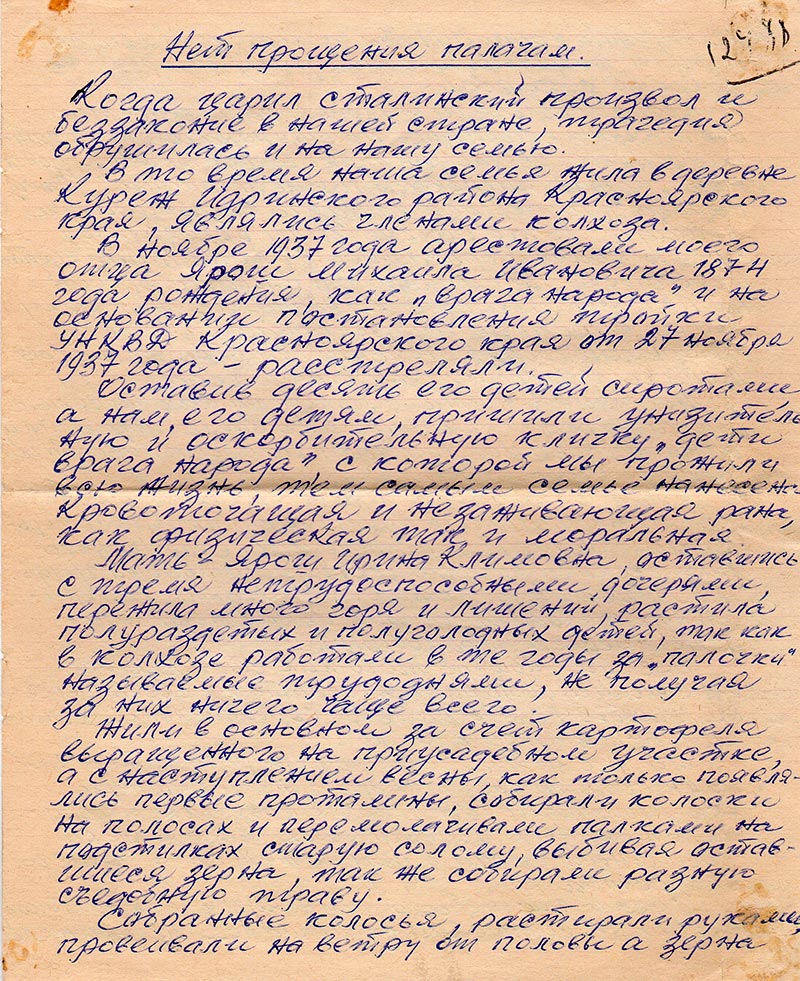 Нет прощения палачам.
Когда царил сталинский произвол и
беззаконие в нашей стране, трагедия
обрушилась и на нашу семью.
В то время наша семья жила в деревне
Куреж Идринского района Красноярского
края, являлись членами колхоза.
В ноябре 1937 года арестовали моего
отца Ярош Михаила Ивановича 1874
года рождения, как „врага народа" и на
основании постановления тройки
УНКВД Красноярского края от 27 ноября
1937 года - расстреляли.
Оставив десять его детей сиротами,
а нам, его детям, пришили унизитель
ную и оскорбительную кличку „дети
врага народа" с которой мы прожили
всю жизнь, тем самым семье нанесена
кровоточащая и незаживающая рана,
как физическая так и моральная
Мать - Ярош Ирина Климовна, оставшись
с тремя нетрудоспособными дочерями,
пережила много горя и лишений, растила
полураздетых и полуголодных детей, так как
в колхозе работали в те годы за „палочки"
называемые трудоднями, не получая
за них ничего чаще всего.
Жили в основном за счет картофеля
выращенного на приусадебном участке,
а с наступлением весны, как только появля-
лись первые проталины, собирали колоски
на полосах и перемолачивали палками на
подстилках старую солому, выбивая остав-
шиеся зерна, так же собирали разную
съедобную траву.
Собранные колосья, растирали руками,
провеивали на ветру от половы а зерна